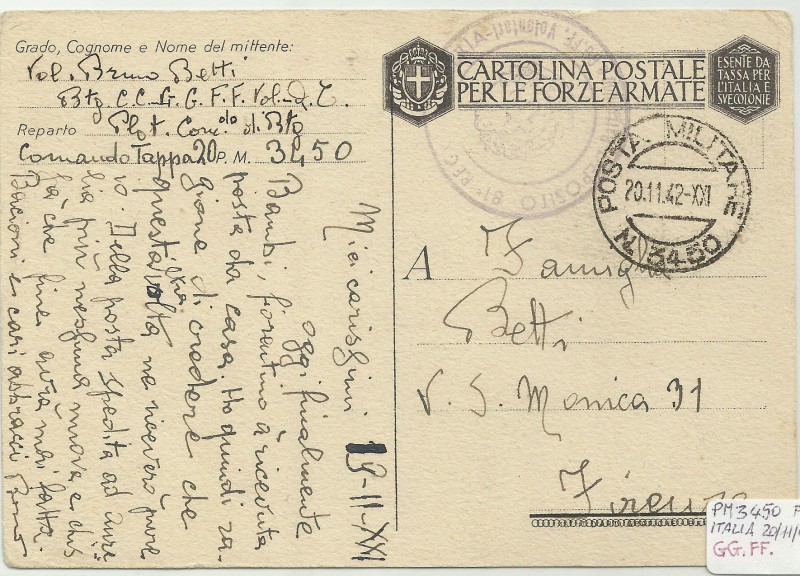 Grado, Cognome e Nome del mittente:
Vol. Bruno Betti
Btg. C.C. G.G.F.F. Vol.
Reparto Plot. Com.do di Btg
Comando Tappa 20 P. M. 3450
CARTOLINA POSTALE
PER LE FORZE ARMATE
ESENTE DA
TASSA PER
L'ITALIA E
SVE COLONIE
POSTA MILITARE
20.11.42-XXI
N. 3450
DEPOSITO 91° REG.
A
Famiglia
Betti
V. S. Monica 31
Firenze
Miei carissimi 19-11-XXI
oggi finalmente
Bambi, fiorentino à ricevuta
posta da casa. Ho quindi ra-
gione di credere che
questa volta ne riceverò pure
io. Della posta spedita ad
più nessuna nuova e
che fine avrà mai fatta.
Bacioni e cari abbracci Bruno
PM 3450
ITALIA 20/11/
GG.FF.